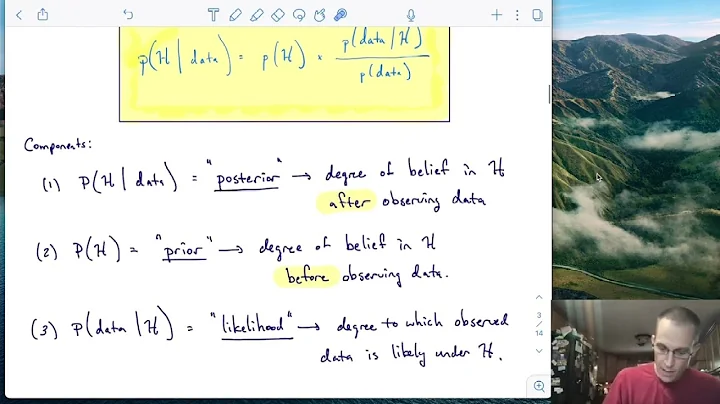 p(H | data) = p(H) × p(data | H) / p(data)
Components:
(1) P(H | data) = "posterior" → degree of belief in H
after observing data
(2) P(H) = "prior" → degree of belief in H
before observing data.
(3) P(data | H) = "likelihood" → degree to which observed
data is likely under H.
3
/
14